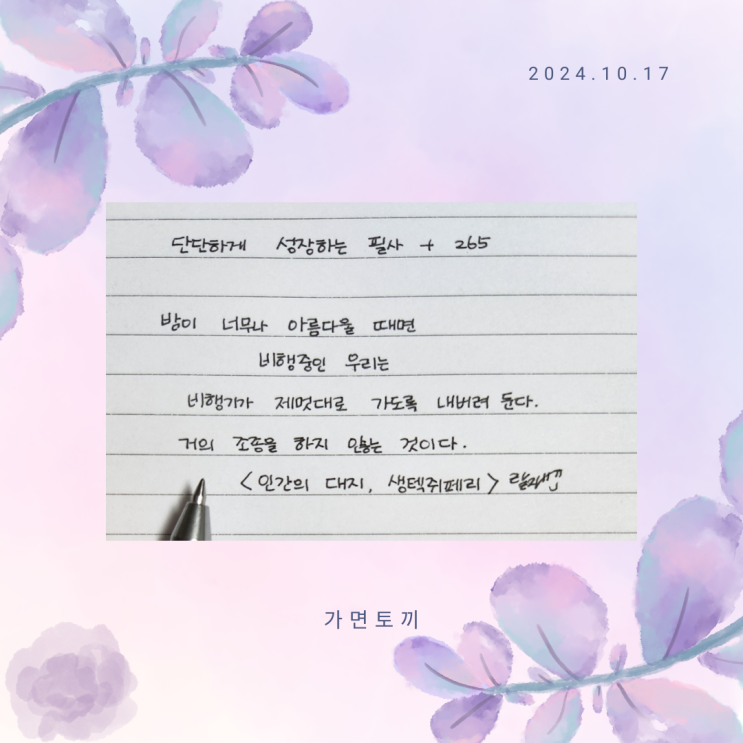 2024.10.17
단단하게 성장하는 필사 + 265
밤이 너무나 아름다울 때면
비행중인 우리는
비행기가 제멋대로 가도록 내버려 둔다.
거의 조종을 하지 않는 것이다.
<인간의 대지, 생텍쥐페리>
가면토끼